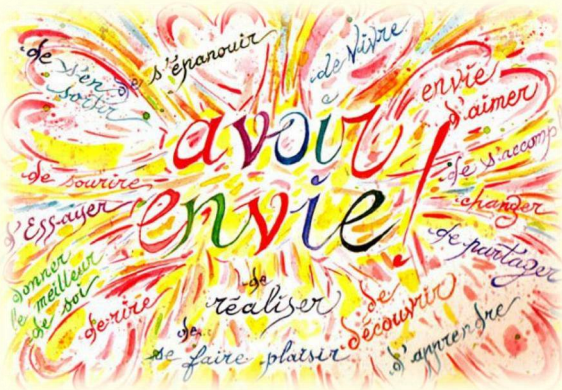 de s'en
sortir
de s'épanouir
de vivre
envie
d'aimer
avoir
envie !
de s'accomp
changer
de partager
de sourire
d'Essayer
donner
le meilleur
de soi
de rire
de
réaliser
de
se faire plaisir
de
découvrir
d'apprendre